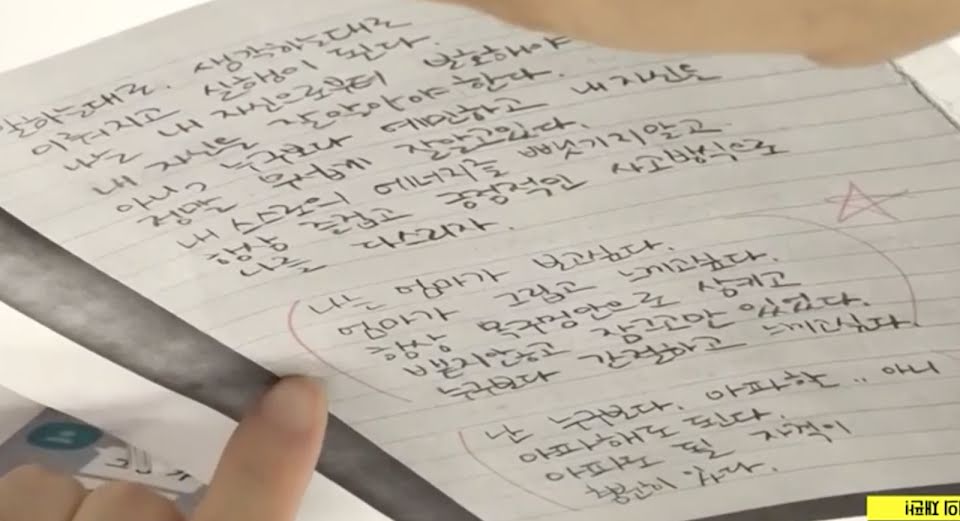 말하는대로. 생각하는대로
이루어지고 실행이 된다.
나는 내 자신으로부터 보호해야
내 자신을 잘 알아야 한다.
아니? 누구보다 예민하고 내 자신을
정말 무섭게 잘알고있다.
내 스스로의 에너지를 뺏기지않고
항상 즐겁고 긍정적인 사고방식으로
나를 다스리자.
나는 엄마가 보고싶다.
엄마가 그립고 느끼고싶다.
항상 목구멍안으로 삼키고
뱉지않고 참고만 있었다.
누구보다 간절하고 느끼고싶다.
난 누구보다. 아파한.. 아니
아파해도 된다.
아파도 될 자격이
충분히 있다.